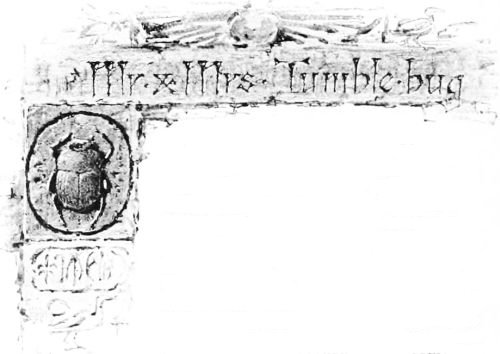 Mr. & Mrs. Tumble-bug